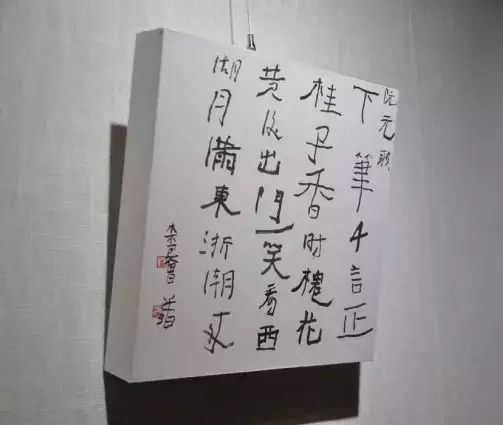 阮元
下筆千言正
桂子香时槐花
黄後出門一笑看西
湖月滿東浙潮来